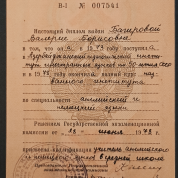 В-I № 007541
Настоящий диплом выдан Багировой
Валерие Борисовне
в том, что он а в 1973 году поступил а
в Азербайджанский педагогический инсти-
тут иностранных языков им. 50-летия СССР
и в 1978 году окончил а полный курс наз-
ванного института
по специальности английский и
немецкий языки
Решением Государственной экзаменационной
комиссии от 28 июня 1978 г.
присвоена квалификация учителя английского
и немецкого языков средней школы